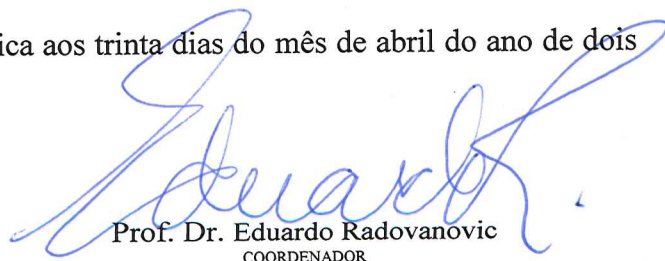 ica aos trinta dias do mês de abril do ano de dois
Eduardo R.
Prof. Dr. Eduardo Radovanovic
COORDENADOR